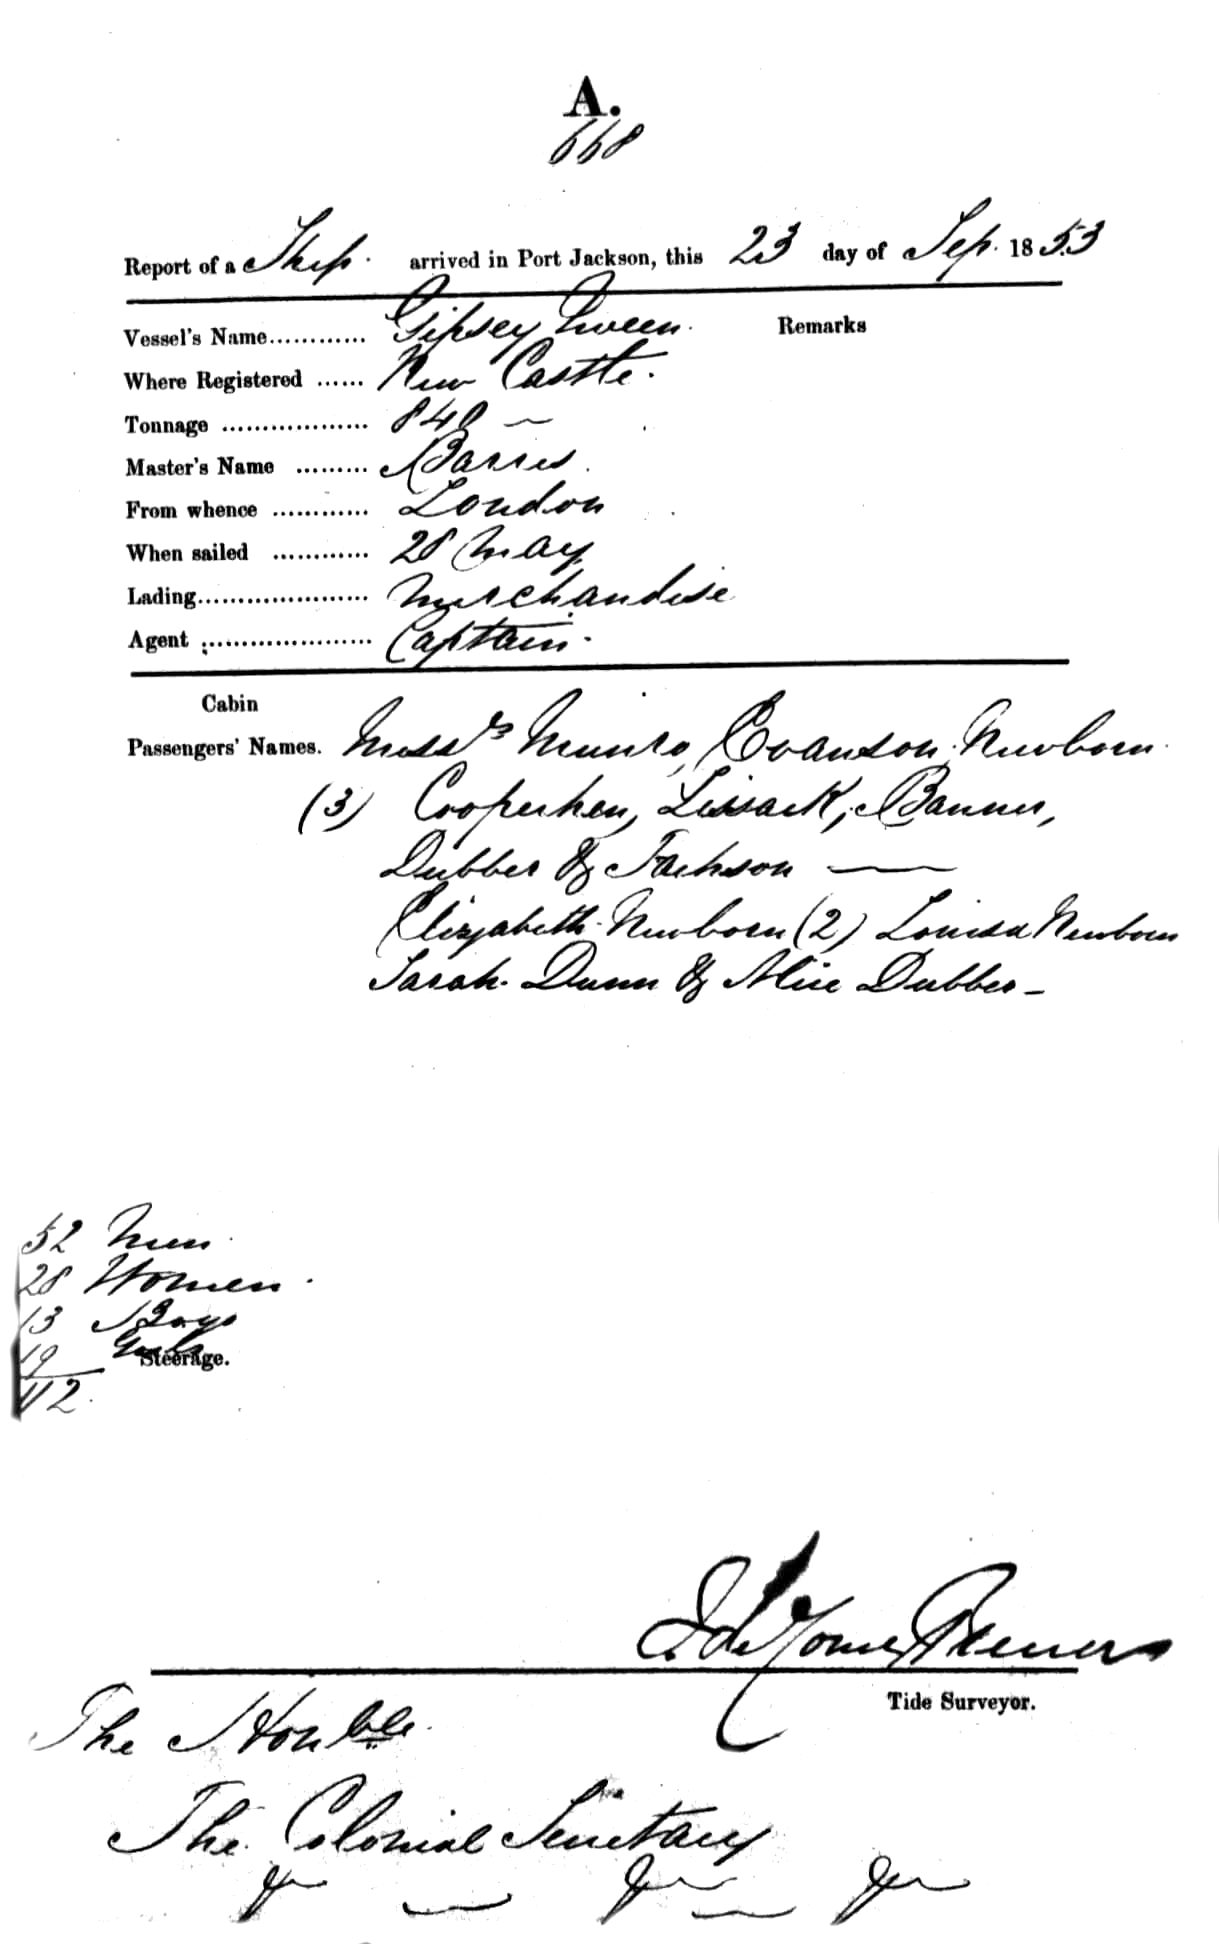 A.
668
Report of a Ship. arrived in Port Jackson, this 23 day of Sep. 1853
Vessel's Name............ Gipsey Queen. Remarks
Where Registered ...... New Castle.
Tonnage .................. 840 —
Master's Name ......... Barres.
From whence ............ London
When sailed ............ 28 May
Lading..................... Merchandise
Agent ..................... Captain.
Cabin
Passengers' Names. Messrs Munro, Evanson, Newborn
(3) Lissack, Banner,
Dubber & Jackson —
Elizabeth Newborn (2) Louisa Newborn
Sarah Dunn & Alice Dubber -
52 Men
28 Women.
13 Boys
19 Girls
Steerage.
112.
Tide Surveyor.
The Honble.
The Colonial Secretary
&c — &c — &c